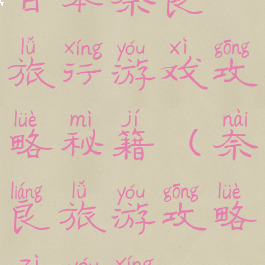 日本奈良
lǚ xíng yóu xì gōng
旅行游戏攻
lüè mì jí nài
略秘籍(奈
liáng lǚ yóu gōng lüè
良旅游攻略
zì yóu xíng